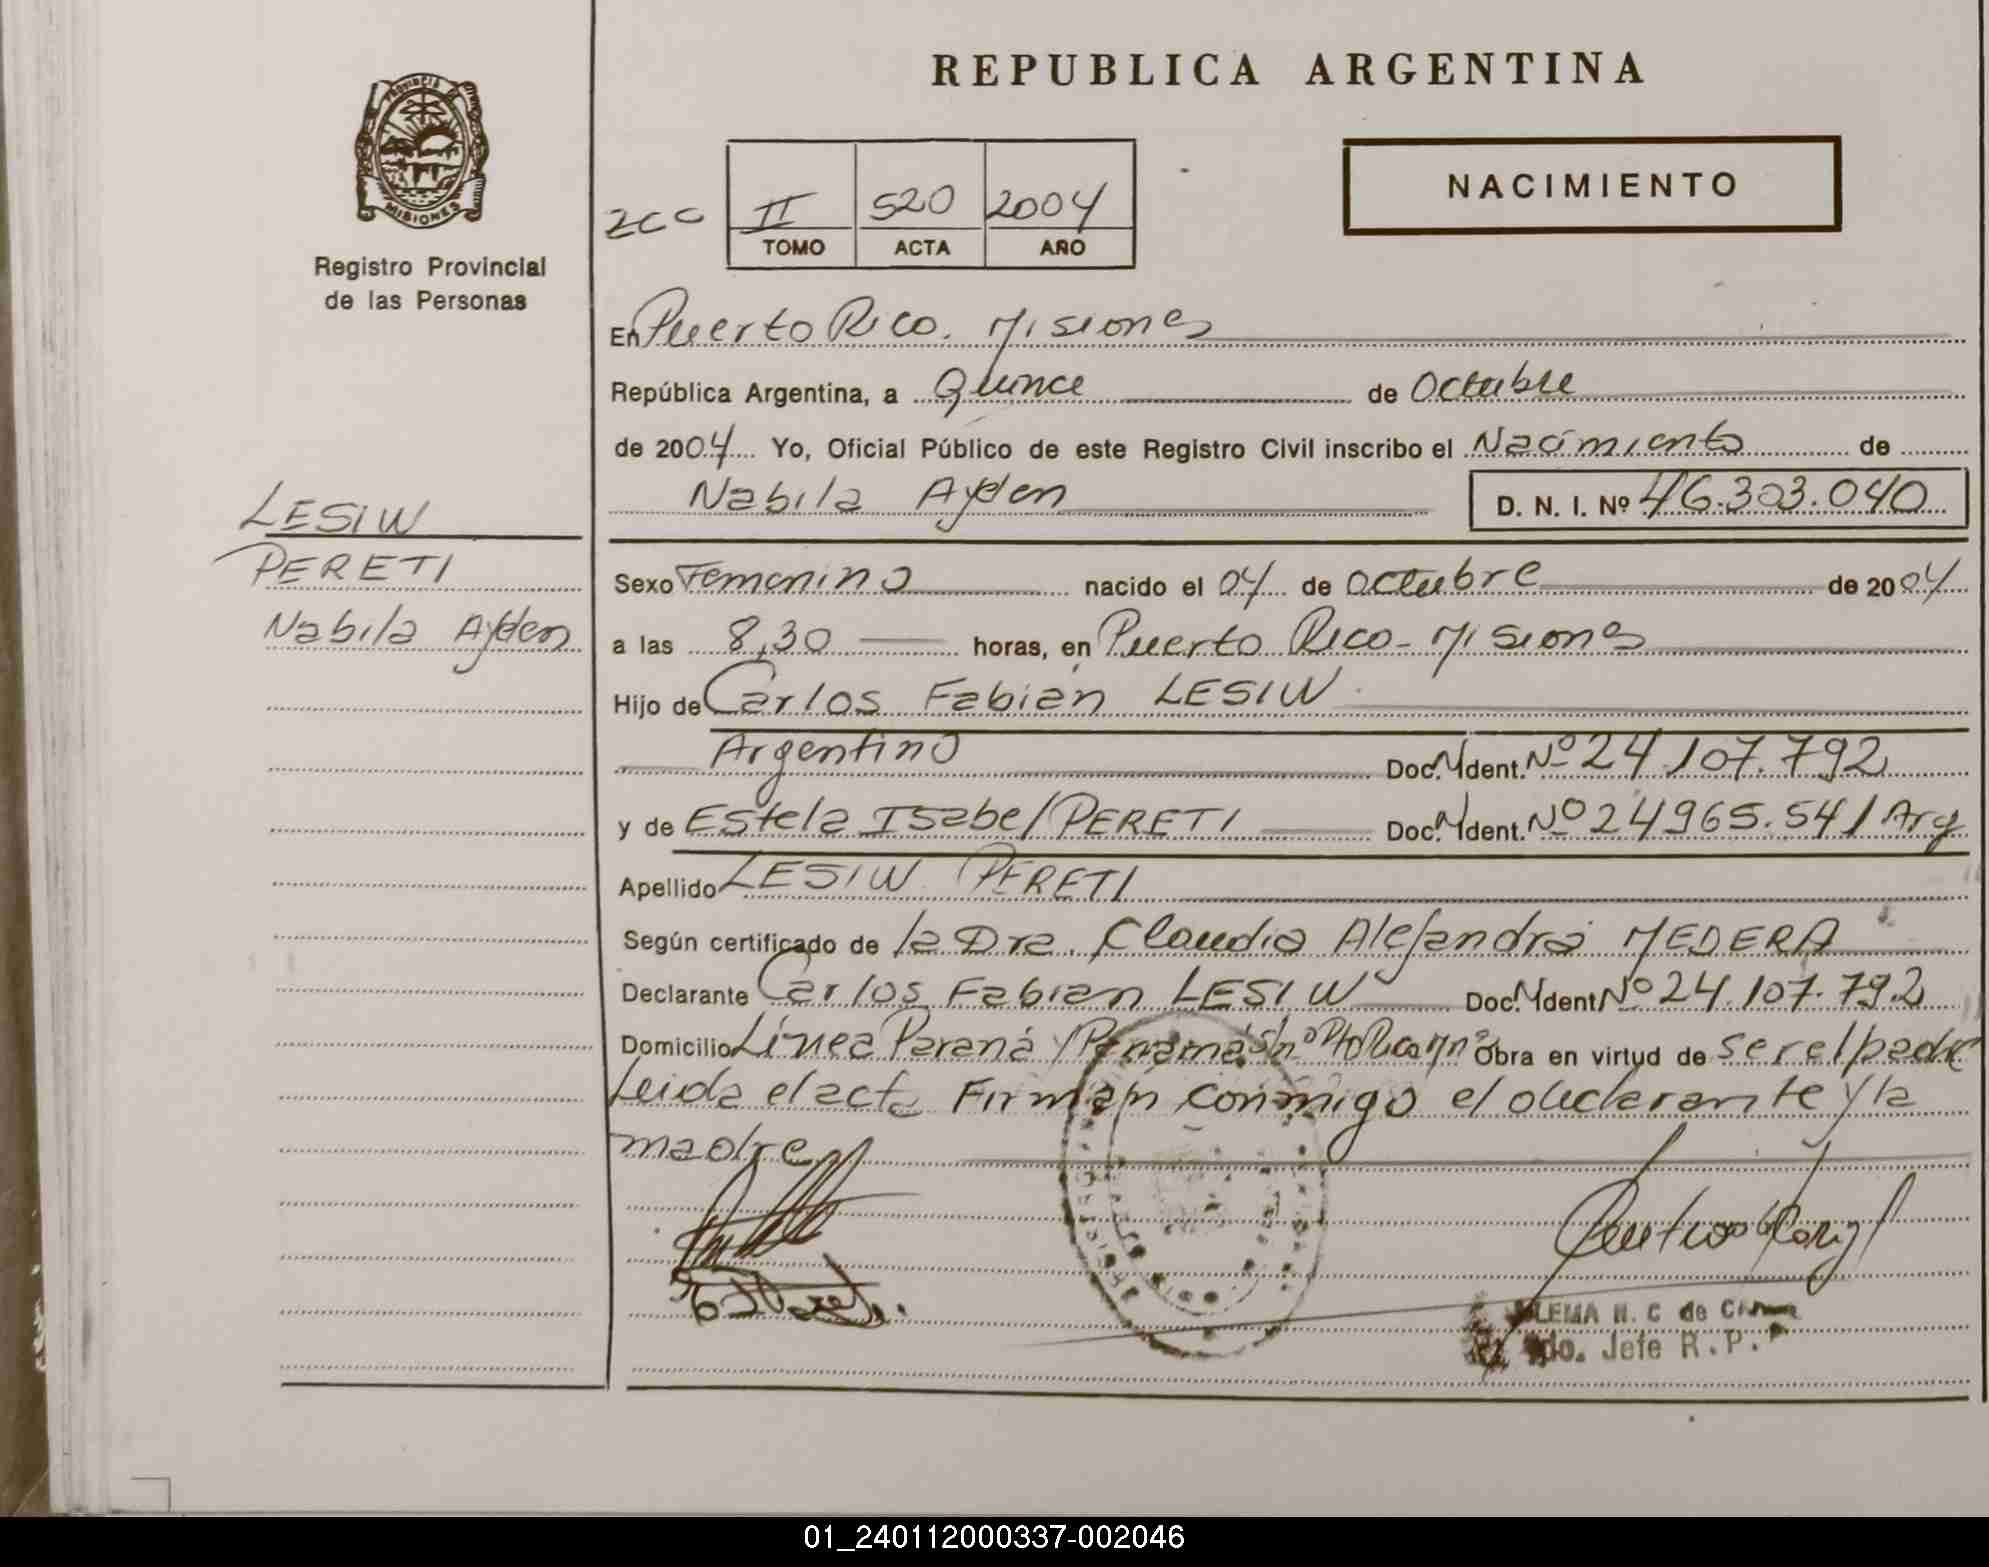 REPUBLICA ARGENTINA
PROVINCIA DE
MISIONES
Registro Provincial
de las Personas
2cc
II 520 2004
TOMO ACTA AÑO
NACIMIENTO
En Puerto Rico. Misiones
República Argentina, a Quince de Octubre
de 2004 Yo, Oficial Público de este Registro Civil inscribo el Nacimiento de
Nabila Ayden D. N. I. Nº 46.303.040
LESIW
PERETI
Nabila Ayden
Sexo Femenino nacido el 04 de octubre de 2004
a las 8,30 horas, en Puerto Rico - Misiones
Hijo de Carlos Fabian LESIW
Argentino Doc. N Ident. Nº 24.107.792
y de Estela Isabel PERETI Doc. N Ident. Nº 24965.541 Arg
Apellido LESIW PERETI
Según certificado de la Dra. Claudia Alejandra MEDERA
Declarante Carlos Fabian LESIW Doc. N Ident Nº 24.107.792
Domicilio Línea Paraná y Panamá s/nº Pto Rico Mnes Obra en virtud de ser el padre
Leida el acta Firman conmigo el declarante y la
madre
LEMA N. C de
do. Jefe R. P.
01_240112000337-002046